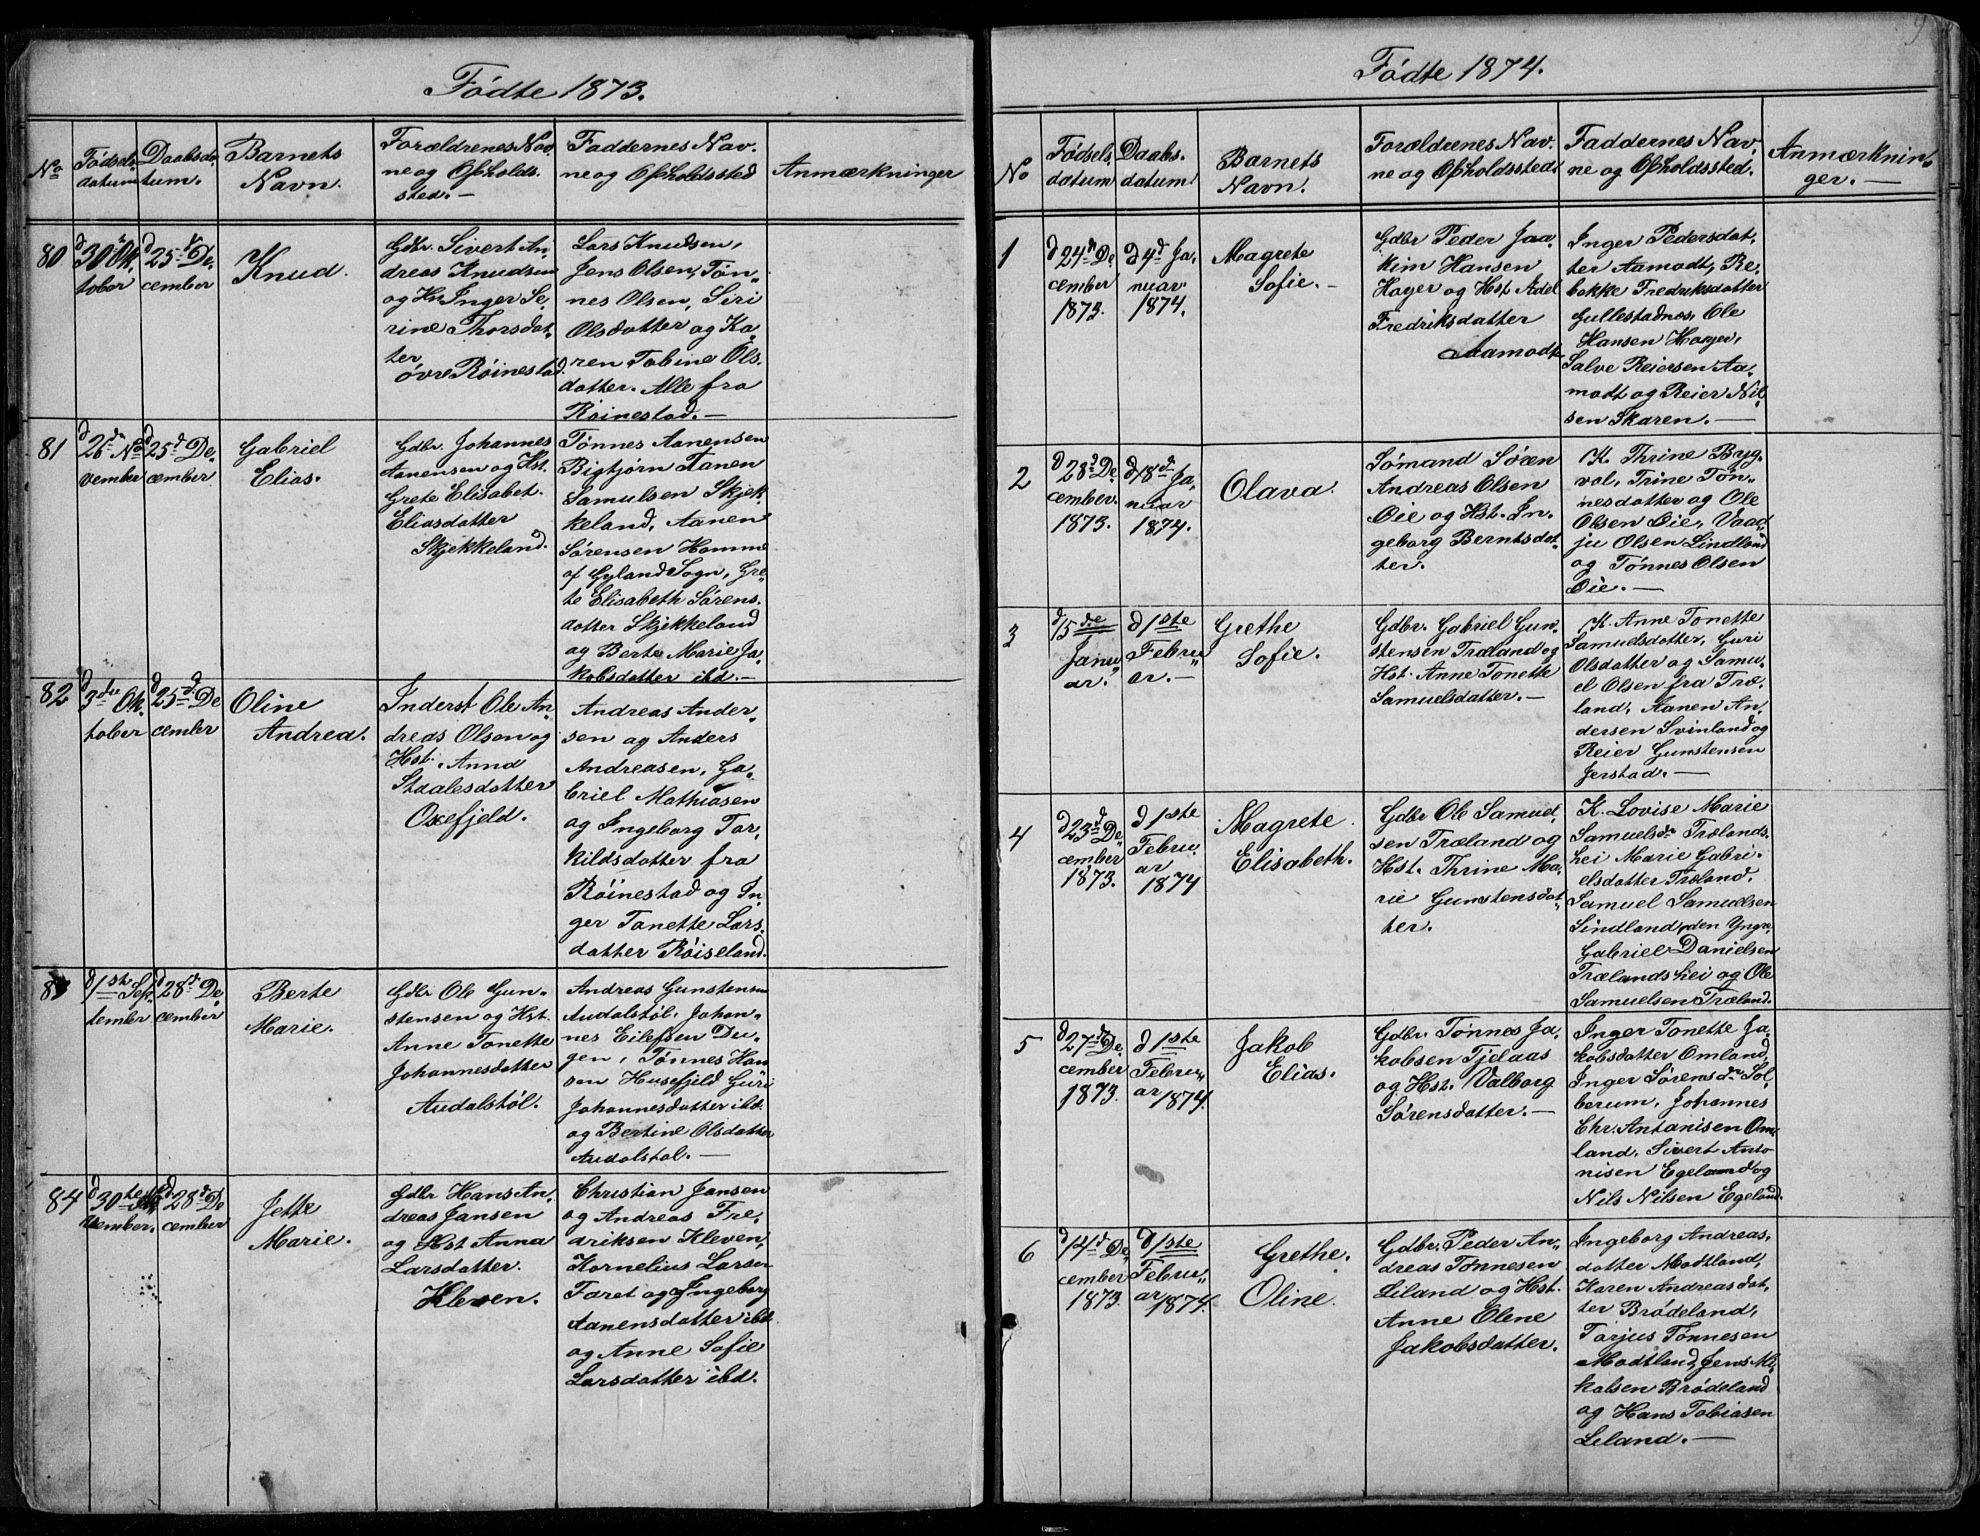 Fødte 1873.
No
Fødsels-
datum
Daabsda-
tum.
Barnets
Navn.
Forældrenes Nav-
ne og Opholds-
sted.-
Faddernes Nav-
ne og Opholdssted
Anmærkninger
80
d 30te Ok-
tober
d 25de De-
cember
Knud.
Gdbr. Sivert An-
dreas Knudsen
og Hst. Inger Se-
rine Thorsdat-
ter
øvre Røinestad.
Lars Knudsen,
Jens Olsen, Tøn-
nes Olsen, Siri
Olsdatter og Ka
ren Tobine Ols-
datter. Alle fra
Røinestad.-
81
d 26de No
vember
d 25d De-
cember
Gabriel
Elias.
Gdbr. Johannes
Aanensen og Hst.
Grete Elisabet.
Eliasdatter
Skjekkeland.
Tønnes Aanensen
Bigtjørn Aanen
Samulsen Skjek
keland, Aanen
Sørensen Homme
af Gyland Sogn, Gre-
te Elisabeth Sørens-
datter Skjekkeland
og Berte Marie Ja-
kobsdatter ibd.-
82
d 3die Ok-
tober
d 25de De
cember
Oline
Andrea.
Inderst Ole An-
dreas Olsen og
Hst. Anna
Staalesdatter
Oxefjeld.
Andreas Ander-
sen og Anders
Andreasen, Ga-
briel Mathiasen
og Ingeborg Tor-
kildsdatter fra
Røinestad og In-
ger Tonette Lars-
datter Røiseland.
83
d 1ste Sep-
tember
d 28de De-
cember
Berte
Marie.
Gdbr Ole Gun-
stensen og Hst.
Anne Tonette
Johannesdatter
Audalstøl.
Andreas Gunstensen
Audalstøl. Johan-
nes Eilefsen Du-
gen, Tønnes Han
sen Husefjeld Guri
Johannesdatter ibd.
og Bertine Olsdatter
Audalstøl.-
84
d 30te
vember.
d 28de De
cember
Jette
Marie.
Gdbr Hans An-
dreas Jansen
og Hst Anna
Larsdatter.
Kleven.
Christian Jansen
og Andreas Fre-
driksen Kleven,
Kornelius Larsen
Faret og Ingeborg
Aanensdatter ibd
og Anne Sofie
Larsdatter ibd.
9
Fødte 1874.
No
Fødsels-
datum
Daabs-
datum
Barnets
Navn.
Forældrenes Nav-
ne og Opholdssted
Faddernes Nav-
ne og Opholdssted.
Anmærknin-
ger.-
1
d 24de De
cember
1873.
d 4d Ja-
nuar
1874.
Magrete
Sofie.-
Gdbr Peder Joa
kim Hansen
Høyer og Hst. Adel
Fredriksdatter
Aamodt.
Inger Pedersdat-
ter Aamodt, Re-
bekke Fredriksdatter
Gullestadnes, Ole
Hansen Høyer,
Salve Reiersen Aa-
modt og Reier Nil-
sen Skaren.-
2
d 28de De-
cember.
1873.
d 18de Ja-
nuar
1874.
Olava.
Sømand Søren
Andreas Olsen
Øie og Hst. In-
geborg Berntsdat-
ter.
K. Thrine Byg-
vol, Trine Tøn-
nesdatter og Ole
Olsen Øie, Vaar-
ju Olsen Lindland
og Tønnes Olsen
Øie.-
3
d 15de
Janu-
ar.
d 1ste
Febru-
ar.-
Grethe
Sofie.
Gdbr. Gabriel Gun-
stensen Træland og
Hst. Anne Tonette
Samuelsdatter.-
K. Anne Tonette
Samuelsdatter, Guri
Olsdatter og Samu-
el Olsen fra Træ-
land, Aanen An-
dersen Svinland og
Reier Gunstensen
Jerstad.-
4
d 23d De-
cember
1873.
d 1ste
Febru-
ar
1874
Magrete
Elisabeth.
Gdbr Ole Samuel-
sen Træland og
Hst. Thrine Ma-
rie Gunstensdat-
ter.
K. Lovise Marie
Samuelsdr. Trælands-
hei Marie Gabri-
elsdatter Træland.
Samuel Samuelsen
Sindland, den Yngre,
Gabriel Danielsen
Trælandshei og Ole
Samuelsen Træland.
5
d 27de De-
cember
1873.
d 1ste
Febru-
ar 1874.
Jakob
Elias.
Gdbr. Tønnes Ja-
kobsen Tjelaas
og Hst. Valborg
Sørensdatter.-
Inger Tonette Ja-
kobsdatter Omland,
Inger Sørensdr Søl-
berum, Johannes
Chr. Antonisen Om-
land, Sivert Anto
nisen Egeland og
Nils Nilsen Egeland.
6
d 14d De-
cember
1873.
d 1ste
Febru-
ar 1874.
Grethe.
Oline.
Gdbr. Peder An-
dreas Tønnesen
Leland og Hst.
Anne Olene
Jakobsdatter.
Ingeborg Andreas-
datter Modtland,
Karen Andreasdat-
ter Brødeland,
Torjus Tønnesen
Modtland, Jens Mi-
kalsen Brødeland
og Hans Tobiasen
Leland.-